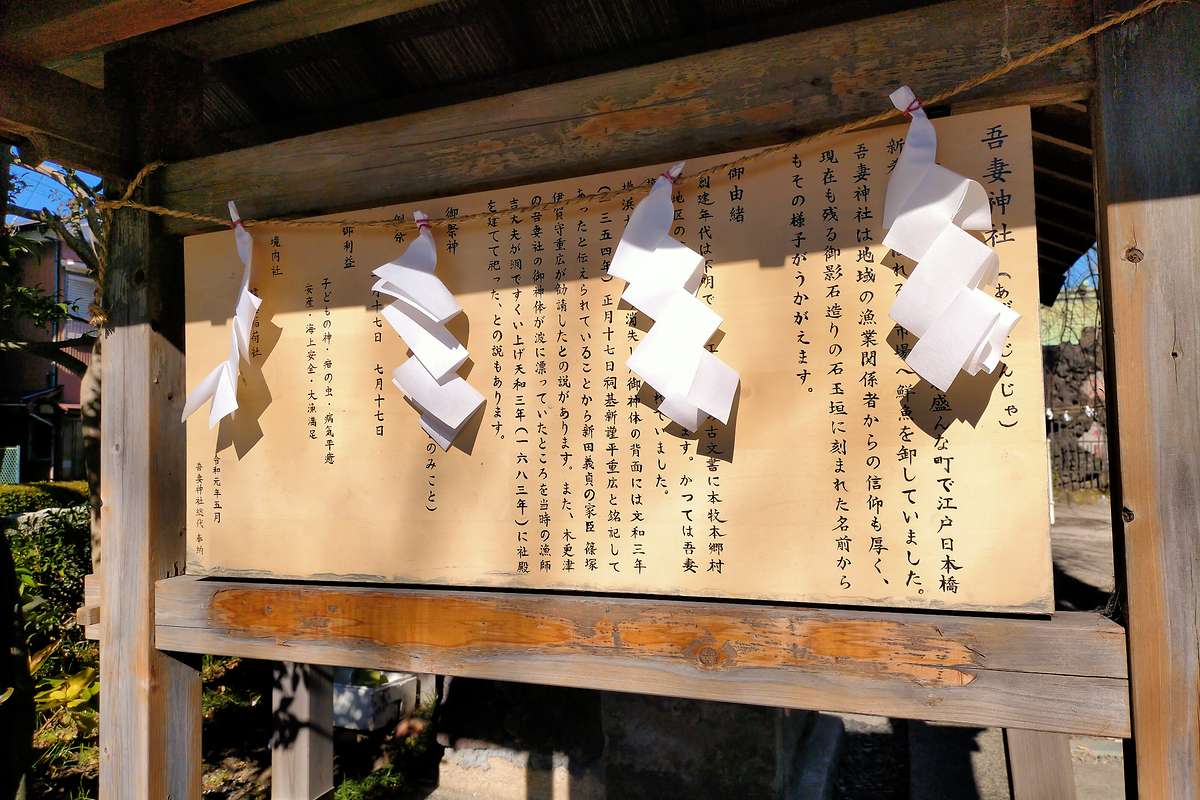 吾妻神社（あづ じんじゃ）
新 れる 市場へ 盛んな町で江戸日本橋
鮮魚を卸していました。
吾妻神社は地域の漁業関係者からの信仰も厚く、
現在も残る御影石造りの石玉垣に刻まれた名前から
もその様子がうかがえます。
御由緒
創建年代は不明で 古文書に本牧本郷村
地区の ます。かつては吾妻
れていました。
横浜 消失 御神体の背面には文和三年
（一三五四年）正月十七日祠基新謹平重広と銘記して
あったと伝えられていることから新田義貞の家臣 篠塚
伊賀守重広が勧請したとの説があります。また、木更津
の吾妻社の御神体が波に漂っていたところを当時の漁師
吉太夫が網ですくい上げ天和三年（一六八三年）に社殿
を建てて祀った、との説もあります。
御祭神
のみこと）
例祭
十七日 七月十七日
御利益
子どもの神・疳の虫・病気平癒
安産・海上安全・大漁満足
境内社
稲荷社
令和元年五月
吾妻神社総代 奉納